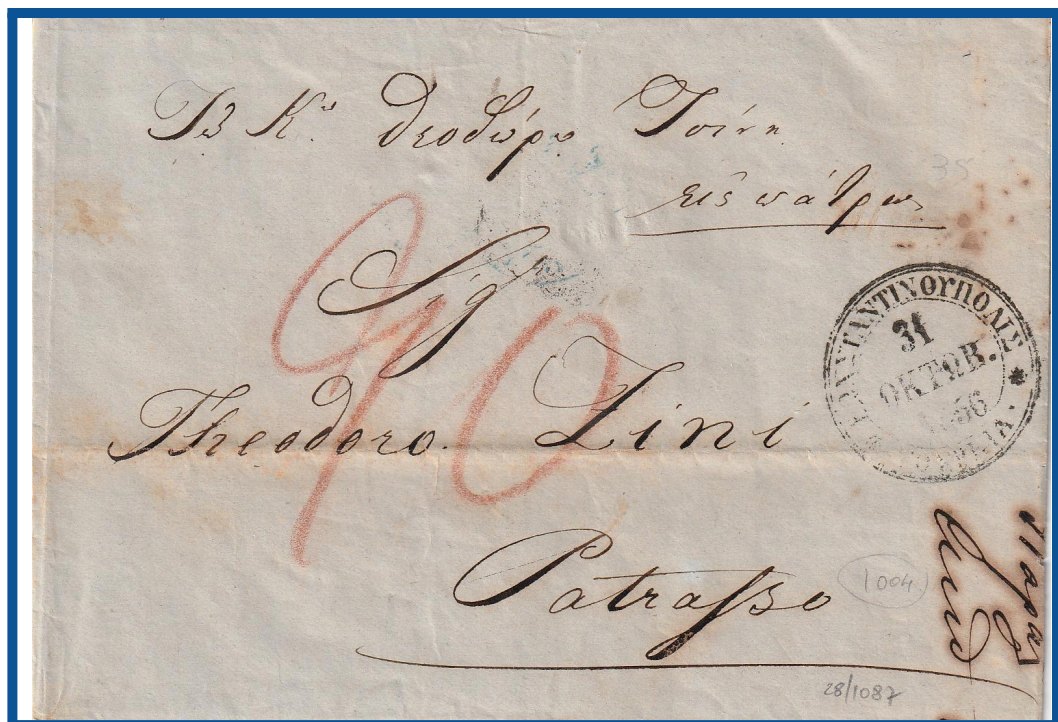 Τῷ Κῳ Θεοδώρῳ Τσίνη
εἰς Πάτρας
35
Sig
90
Theodoro Zini
Patrasso
ΚΩΝΣΤΑΝΤΙΝΟΥΠΟΛΙΣ
31
ΟΚΤΩΒ.
1856
(1004)
28/1087